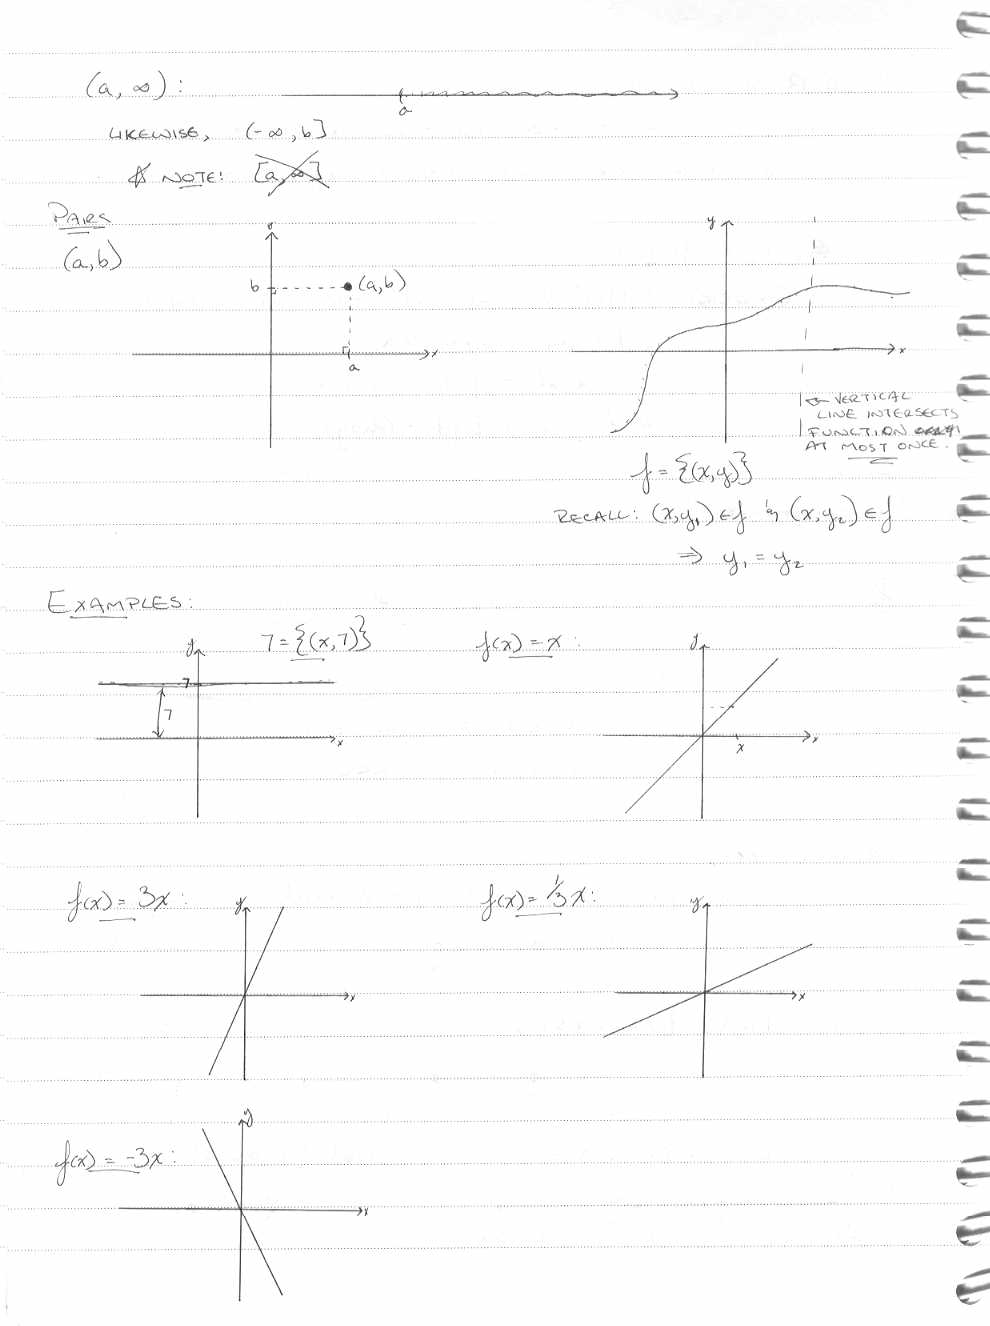 (a, ∞) :
a
LIKEWISE, (-∞, b]
NOTE: [a, ∞]
PAIRS
(a,b)
b
(a,b)
a
x
y
x
VERTICAL
LINE INTERSECTS
FUNCTION
AT MOST ONCE.
f = {(x,y)}
RECALL: (x,y₁) ∈ f & (x,y₂) ∈ f
⇒ y₁ = y₂
EXAMPLES:
7 = {(x,7)}
y
7
7
x
f(x) = x :
y
x
x
f(x) = 3x :
y
x
f(x) = 1/3 x :
y
x
f(x) = -3x :
y
x